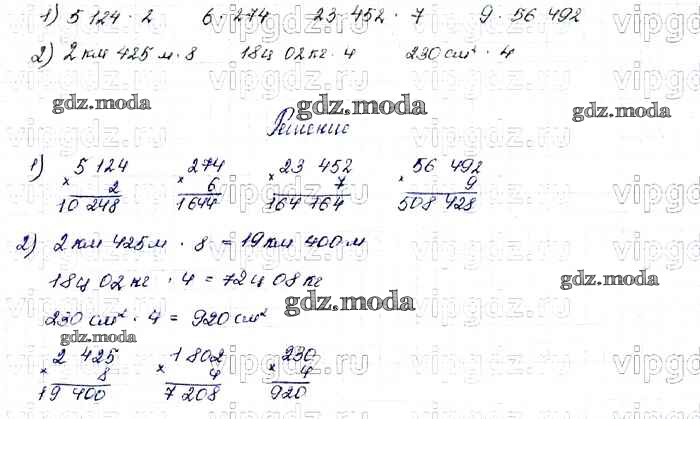 1) 5 124 · 2 6 · 274 23 452 · 7 9 · 56 492
2) 2 км 425 м · 8 18 ц 02 кг · 4 230 см² · 4
gdz.moda gdz.moda gdz.moda
Решение
1) 5 124 274 23 452 56 492
× 2 × 6 × 7 × 9
10 248 1644 164 164 508 428
2) 2 км 425 м · 8 = 19 км 400 м
18 ц 02 кг · 4 = 72 ц 08 кг
gdz.moda
230 см² · 4 = 920 см²
gdz.moda gdz.moda
2 425 1 802 230
× 8 × 4 × 4
19 400 7 208 920